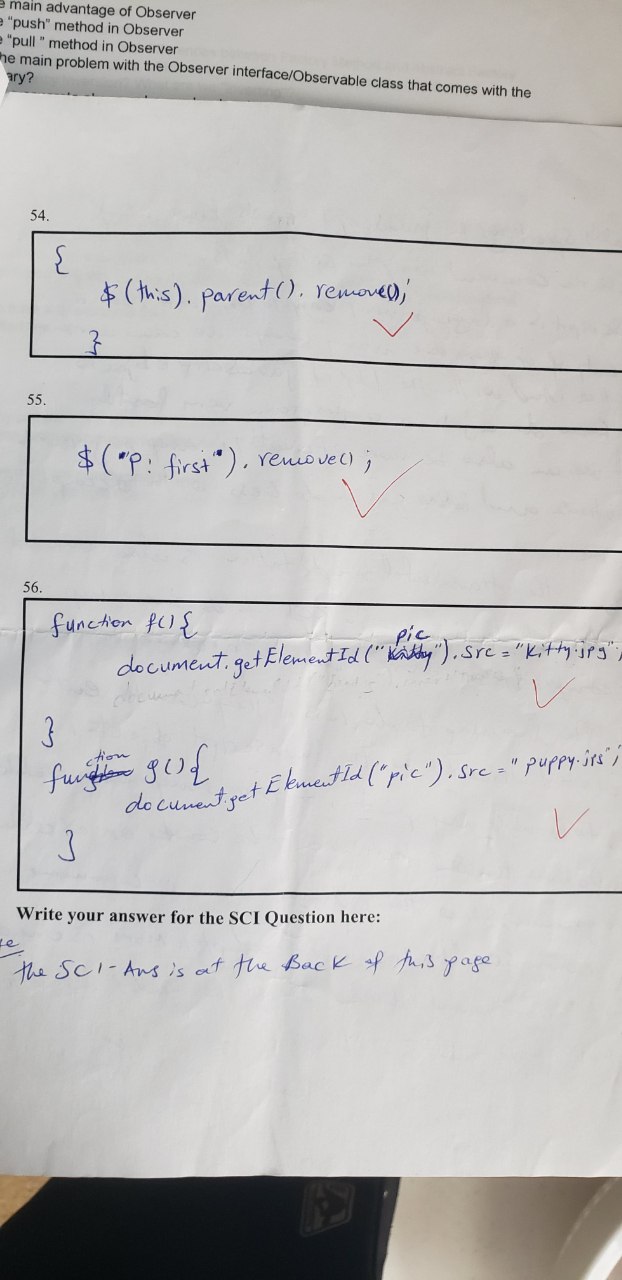 main advantage of Observer
"push" method in Observer
"pull " method in Observer
he main problem with the Observer interface/Observable class that comes with the
ary?
54.
{
$(this). parent(). remove();
}
55.
$("p: first"). remove();
56.
function f(){
pic
document.getElementId("").src = "kitty.jpg";
}
function g(){
document.getElementId("pic").src = "puppy.jpg";
}
Write your answer for the SCI Question here:
the SCI-Ans is at the Back of this page